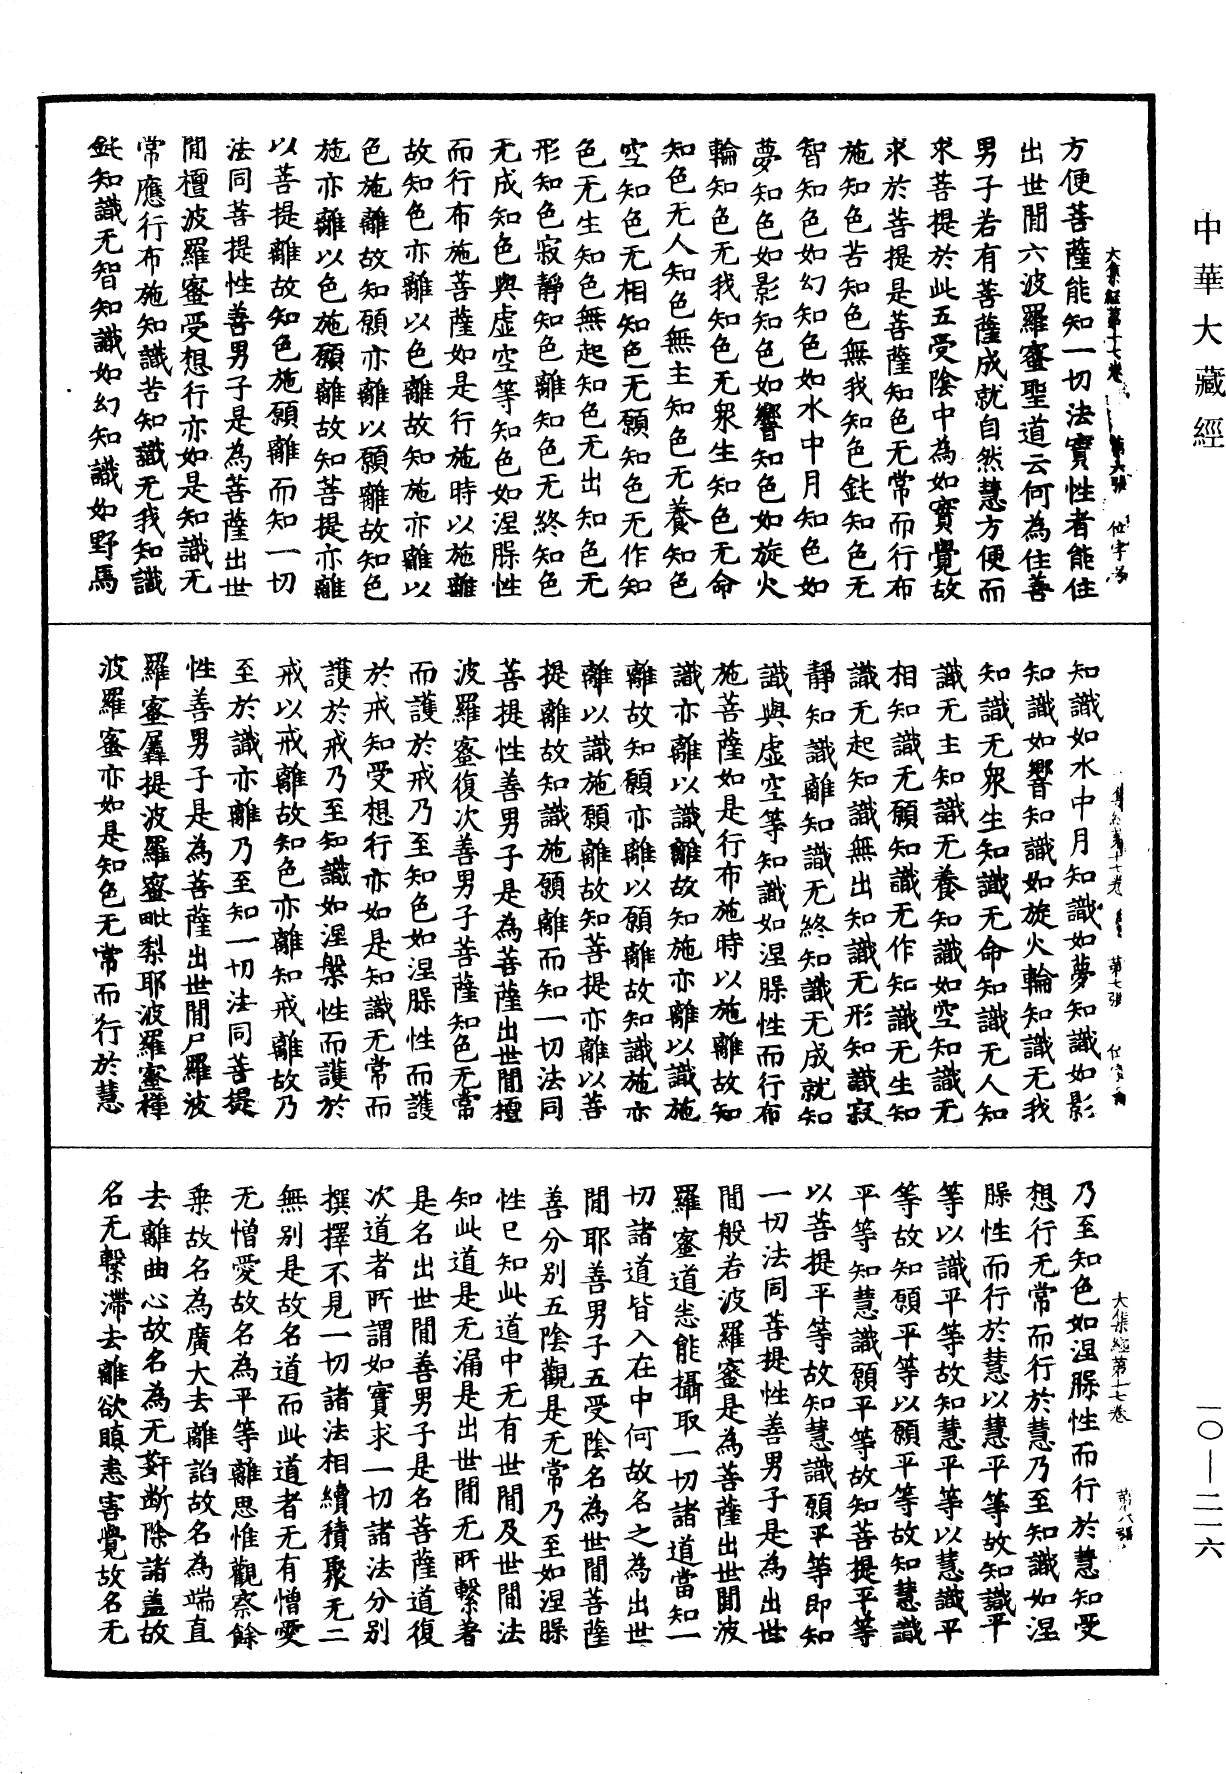 中華大藏經
大集經第十七卷 第六張 位字号
方便菩薩能知一切法實性者能住
出世間六波羅蜜聖道云何為住善
男子若有菩薩成就自然慧方便而
求菩提於此五受陰中為如實覺故
求於菩提是菩薩知色无常而行布
施知色苦知色無我知色鈍知色无
智知色如幻知色如水中月知色如
夢知色如影知色如響知色如旋火
輪知色无我知色无衆生知色无命
知色无人知色無主知色无養知色
空知色无相知色无願知色无作知
色无生知色無起知色无出知色无
形知色寂靜知色離知色无終知色
无成知色與虛空等知色如涅槃性
而行布施菩薩如是行施時以施離
故知色亦離以色離故知施亦離以
色施離故知願亦離以願離故知色
施亦離以色施願離故知菩提亦離
以菩提離故知色施願離而知一切
法同菩提性善男子是為菩薩出世
間檀波羅蜜受想行亦如是知識无
常應行布施知識苦知識无我知識
鈍知識无智知識如幻知識如野馬
集經第十七卷 第七張 位字号
知識如水中月知識如夢知識如影
知識如響知識如旋火輪知識无我
知識无衆生知識无命知識无人知
識无主知識无養知識如空知識无
相知識无願知識无作知識无生知
識无起知識無出知識无形知識寂
靜知識離知識无終知識无成就知
識與虛空等知識如涅槃性而行布
施菩薩如是行布施時以施離故知
識亦離以識離故知施亦離以識施
離故知願亦離以願離故知識施亦
離以識施願離故知菩提亦離以菩
提離故知識施願離而知一切法同
菩提性善男子是為菩薩出世間檀
波羅蜜復次善男子菩薩知色无常
而護於戒乃至知色如涅槃性而護
於戒知受想行亦如是知識无常而
護於戒乃至知識如涅槃性而護於
戒以戒離故知色亦離知戒離故乃
至於識亦離乃至知一切法同菩提
性善男子是為菩薩出世間尸羅波
羅蜜羼提波羅蜜毗梨耶波羅蜜禪
波羅蜜亦如是知色无常而行於慧
大集經第十七卷 第八張
乃至知色如涅槃性而行於慧知受
想行无常而行於慧乃至知識如涅
槃性而行於慧以慧平等故知識平
等以識平等故知慧平等以慧識平
等故知願平等以願平等故知慧識
平等知慧識願平等故知菩提平等
以菩提平等故知慧識願平等即知
一切法同菩提性善男子是為出世
間般若波羅蜜是為菩薩出世間波
羅蜜道悉能攝取一切諸道當知一
切諸道皆入在中何故名之為出世
間耶善男子五受陰名為世間菩薩
善分別五陰觀是无常乃至如涅槃
性已知此道中无有世間及世間法
知此道是无漏是出世間无所繫著
是名出世間善男子是名菩薩道復
次道者所謂如實求一切諸法分別
撰擇不見一切諸法相續積聚无二
無別是故名道而此道者无有憎愛
无憎愛故名為平等離思惟觀察餘
乘故名為廣大去離諂故名為端直
去離曲心故名為无姧断除諸蓋故
名无繫滯去離欲瞋恚害覺故名无
一〇—二一六